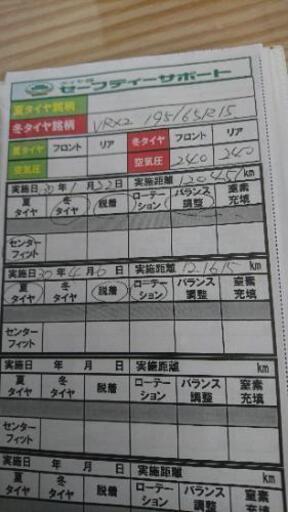 セーフティーサポート
夏タイヤ銘柄
冬タイヤ銘柄 VRX2 195/65R15
夏タイヤ フロント リア 冬タイヤ フロント リア
空気圧 空気圧 240 240
実施日 30年 1月 22日 実施距離 12045 km
夏タイヤ 冬タイヤ 脱着 ローテーション バランス調整 窒素充填
センターフィット
実施日 30年 4月 6日 実施距離 12,1615 km
夏タイヤ 冬タイヤ 脱着 ローテーション バランス調整 窒素充填
センターフィット
実施日 年 月 日 実施距離 km
夏タイヤ 冬タイヤ 脱着 ローテーション バランス調整 窒素充填
センターフィット
実施日 年 月 日 実施距離 km
夏タイヤ 冬タイヤ 脱着 ローテーション バランス調整 窒素充填